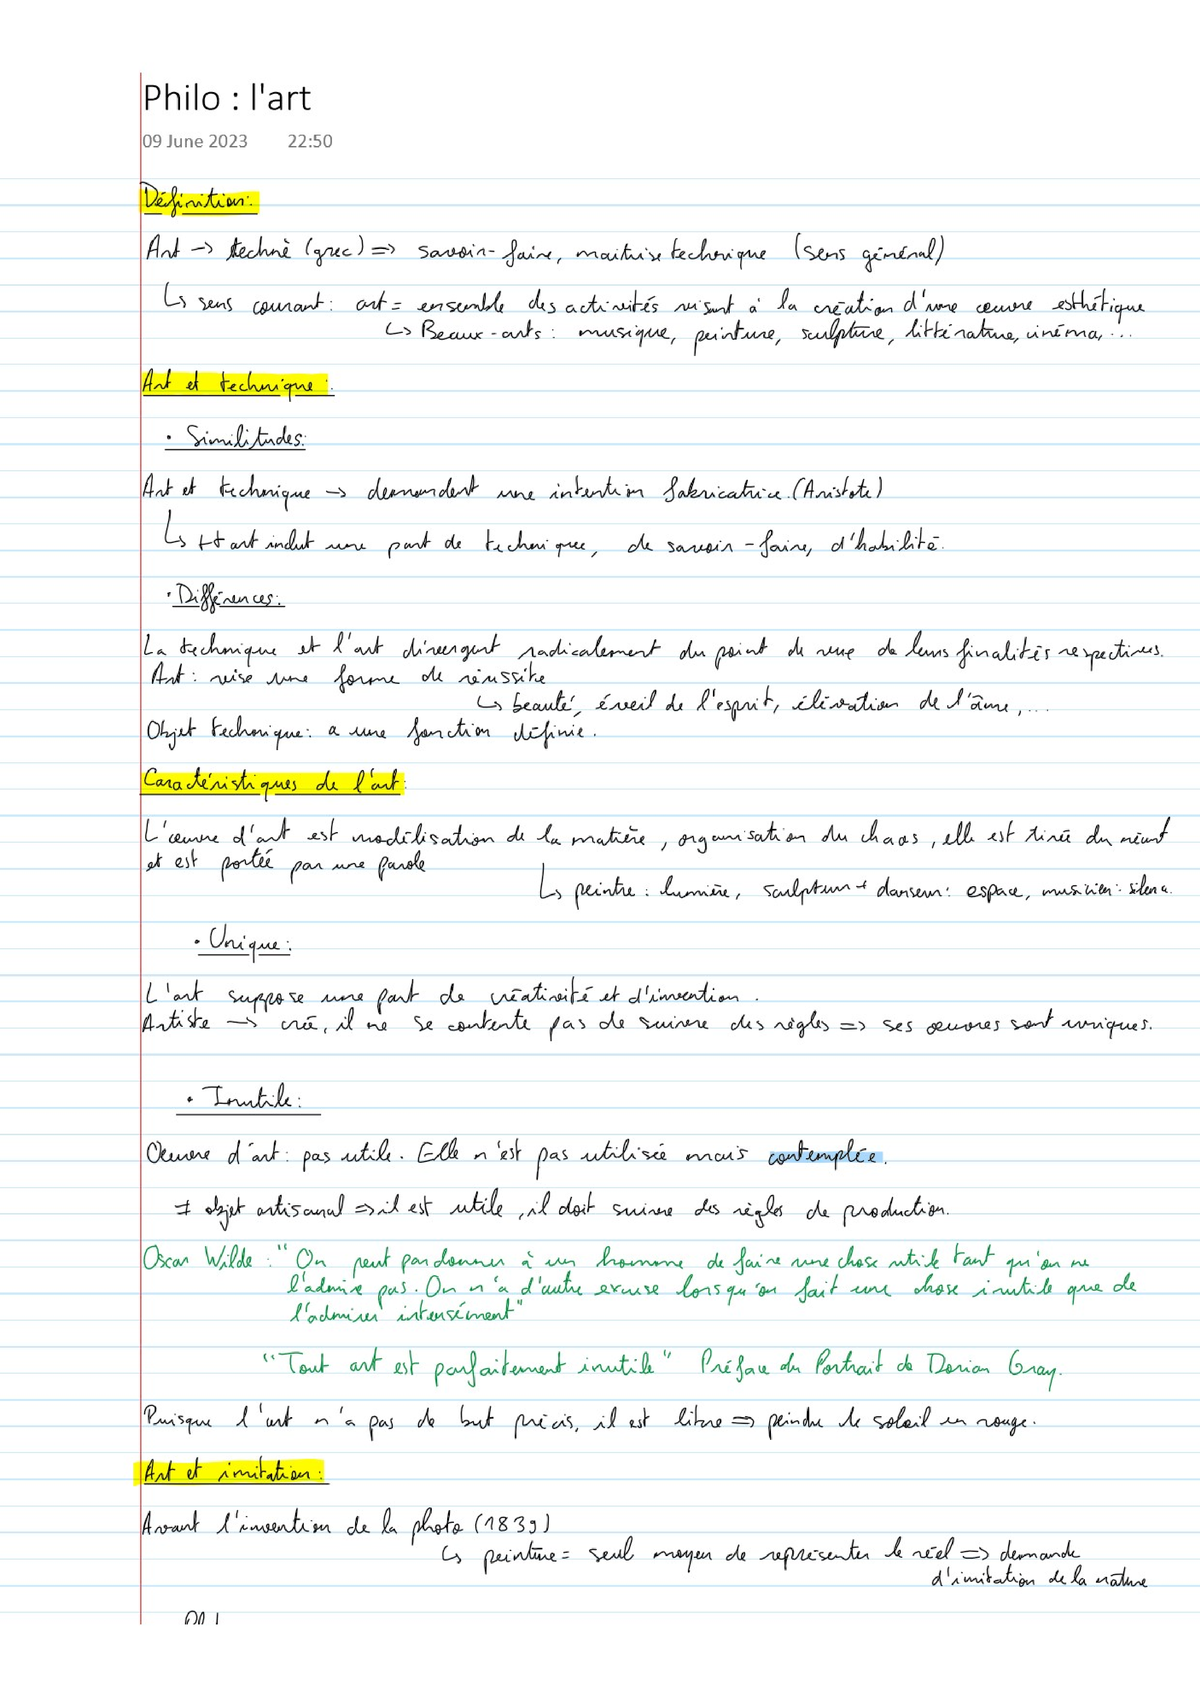 Philo : l'art
09 June 2023 22:50
Définition:
Art -> technè (grec) => savoir-faire, maitrise technique (sens général)
↳ sens courant: art = ensemble des activités visant à la création d'une œuvre esthétique
↳ Beaux-arts : musique, peinture, sculpture, littérature, cinéma, ...
Art et technique :
• Similitudes:
Art et technique -> demandent une intention fabricatrice. (Aristote)
↳ tt art inclut une part de technique, de savoir-faire, d'habilité.
• Différences:
La technique et l'art divergent radicalement du point de vue de leurs finalités respectives.
Art : vise une forme de réussite
↳ beauté, éveil de l'esprit, élévation de l'âme, ...
Objet technique: a une fonction définie.
Caractéristiques de l'art:
L'œuvre d'art est modélisation de la matière, organisation du chaos, elle est tirée du néant
et est portée par une parole
↳ peintre : lumière, sculpteur + danseur: espace, musicien: silence.
• Unique:
L'art suppose une part de créativité et d'invention.
Artiste -> crée, il ne se contente pas de suivre des règles => ses œuvres sont uniques.
• Inutile:
Œuvre d'art: pas utile. Elle n'est pas utilisée mais contemplée.
≠ objet artisanal => il est utile, il doit suivre des règles de production.
Oscar Wilde : "On peut pardonner à un homme de faire une chose utile tant qu'on ne
l'admire pas. On n'a d'autre excuse lorsqu'on fait une chose inutile que de
l'admirer intensément"
"Tout art est parfaitement inutile" Préface du Portrait de Dorian Gray.
Puisque l'art n'a pas de but précis, il est libre => peindre le soleil en rouge.
Art et imitation:
Avant l'invention de la photo (1839)
↳ peinture = seul moyen de représenter le réel => demande
d'imitation de la nature